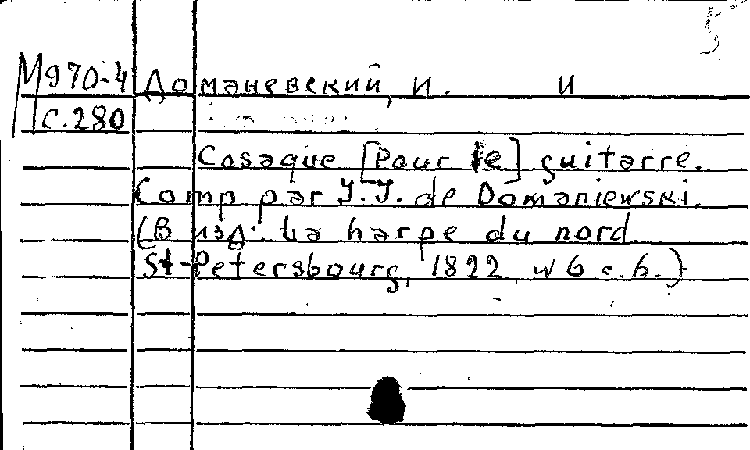 5
М970-4 Доманевский, И. И
С.280
Cosaque [Pour le] guitarre.
Comp par J.J. de Domaniewski.
(В изд: La harpe du nord
St-Petersbourg, 1822 w 6 c. h.)